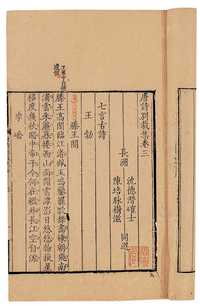 唐詩別裁集卷三
長洲
沈德潛確士
陳培脉樹滋
同選
七言古詩
王勃
滕王閣
滕王高閣臨江渚佩玉鳴鸞罷歌舞畫棟朝飛南
浦雲朱簾暮捲西山雨閒雲潭影日悠悠物換星
移幾度秋閣中帝子今何在檻外長江空自流
李嶠